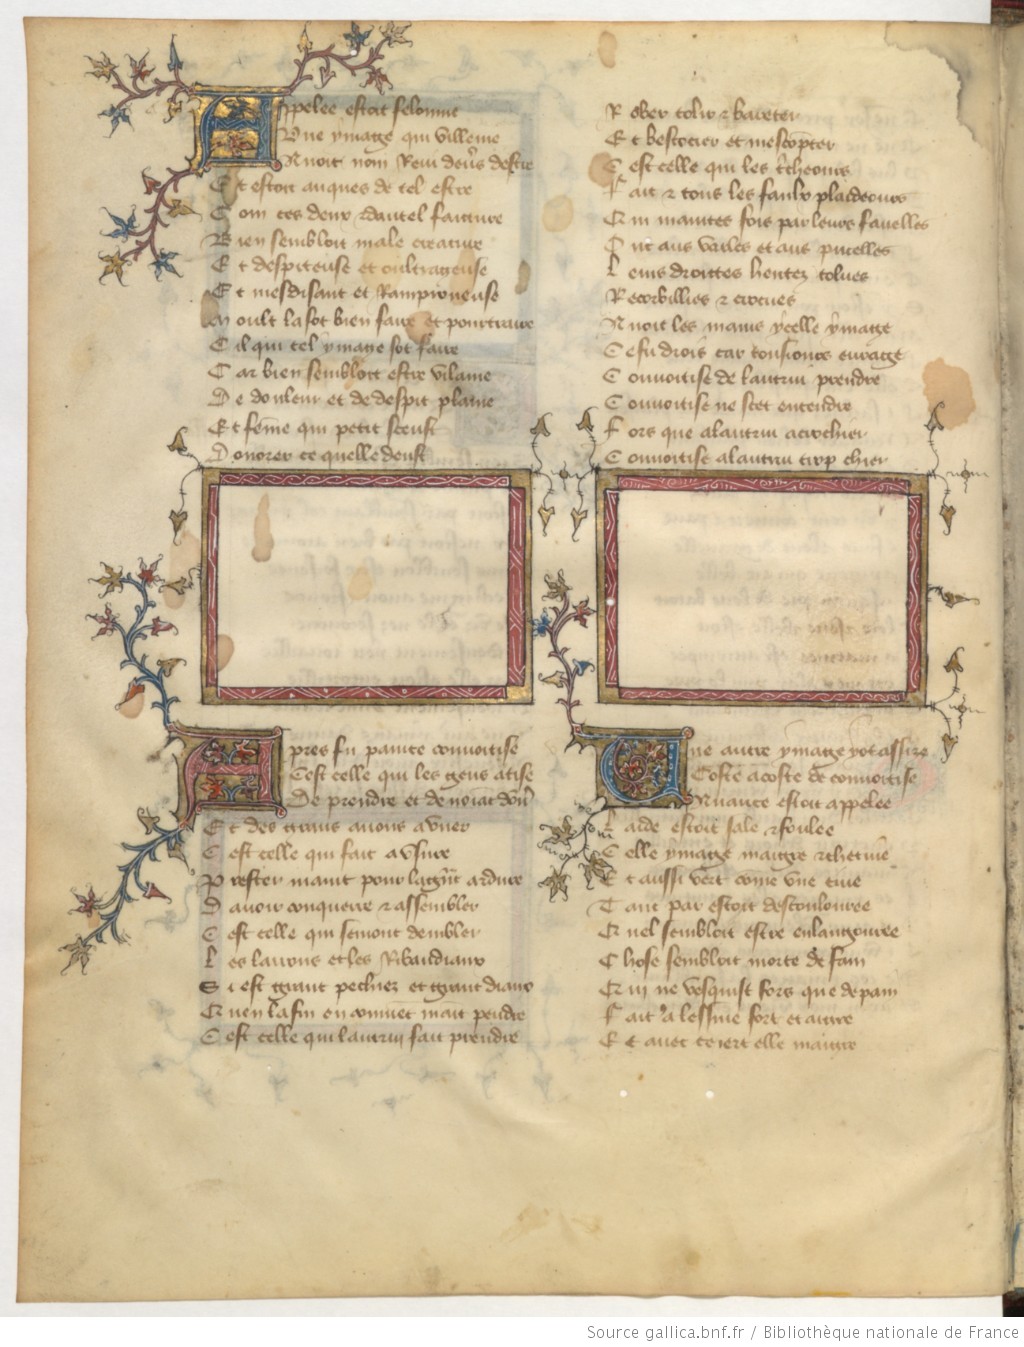 Appelee estoit felonnie
Une ymage qui villenie
Auoit nom Reui deuers destre
Et estoit auques de tel estre
Com ces deux et dautel faiture
Bien sembloit male creature
Et despiteuse et oultrageuse
Et mesdisant et Ramponeuse
Moult la sot bien faire et pourtraire
Cil qui tel ymage sot faire
Car bien sembloit estre vilaine
De douleur et de despit plaine
Et feme qui petit sceust
Donorer ce quelle deust
Apres fu painte conuoitise
Cest celle qui les gens atise
De prendre et de noiat don
Et des grans auoirs auner
Cest celle qui fait a vsure
Prester maint pour la grat ardure
Dauoir conquerre et assembler
Cest celle qui semont dembler
Les larrons et les Ribaudiaux
Si est grant pechiez et grant diaux
Quen la fin en conuiet mait pendre
Cest celle qui lautrui fait prendre
Rober tolir et bareter
Et bestocier et mescopter
Cest celle qui les tcheours
Fait et tous les faulx plaideours
Qui maintes fois par leurs fauelles
Ont aus varles et aus pucelles
Leurs droittes heritez tolues
Recorbillies et crocues
Auoit les mains ycelle ymage
Ce fu drois car tousiours enrage
Conuoitise de lautrui prendre
Conuoitise ne scet entendre
Fors que a lautrui acrochier
Conuoitise a lautrui trop chier
Une autre ymage y ot assize
Coste acoste de conuoitise
Auarice estoit appelee
Laide estoit sale et foulee
Celle ymage maigre et chetiue
Et aussi vert come vne ciue
Tant par estoit descoulouree
Quel sembloit estre enlangouree
Chose sembloit morte de fain
Qui ne vesquist fors que de pain
Fait a lessiue fort et aigre
Et auec ce iert elle maigre
Source gallica.bnf.fr / Bibliothèque nationale de France